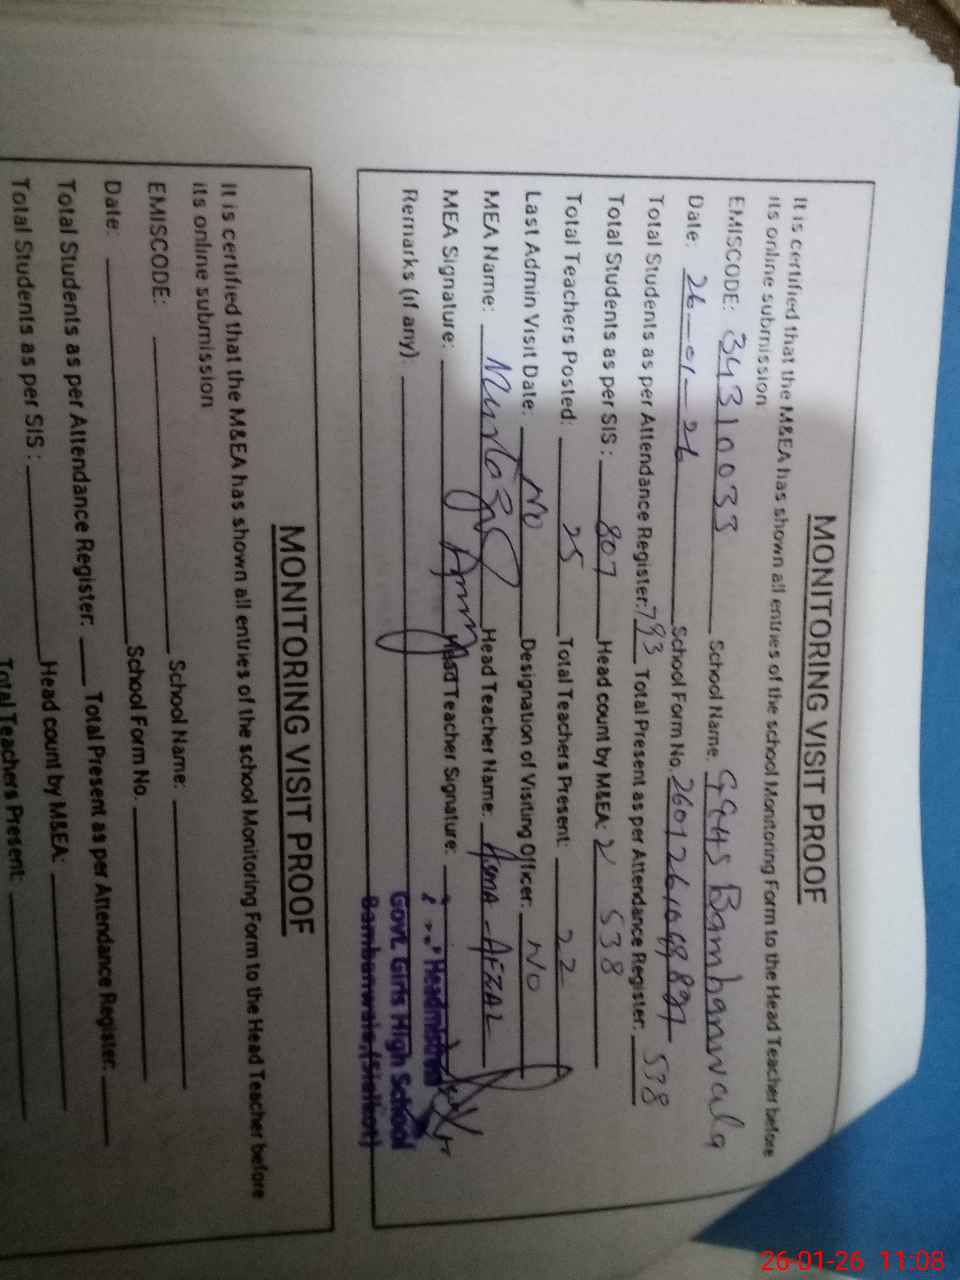 MONITORING VISIT PROOF
It is certified that the M&EA has shown all entries of the school Monitoring Form to the Head Teacher before
its online submission.
EMISCODE: 34310033 School Name: GGHS Bambanwala
Date: 26-01-26 School Form No.
Total Students as per Attendance Register: 793 Total Present as per Attendance Register: 538
Total Students as per SIS: 807 Head count by M&EA: 538
Total Teachers Posted: 25 Total Teachers Present: 22
Last Admin Visit Date: No Designation of Visiting Officer: No
MEA Name: Head Teacher Name: Asma - AFZAL
MEA Signature: Head Teacher Signature:
Remarks (if any):
Headmistress
Govt. Girls High School
Bambanwala (Sialkot)
MONITORING VISIT PROOF
It is certified that the M&EA has shown all entries of the school Monitoring Form to the Head Teacher before
its online submission
EMISCODE: School Name:
Date: School Form No.
Total Students as per Attendance Register: Total Present as per Attendance Register:
Total Students as per SIS: Head count by M&EA:
Total Teachers Present:
26-01-26 11:08